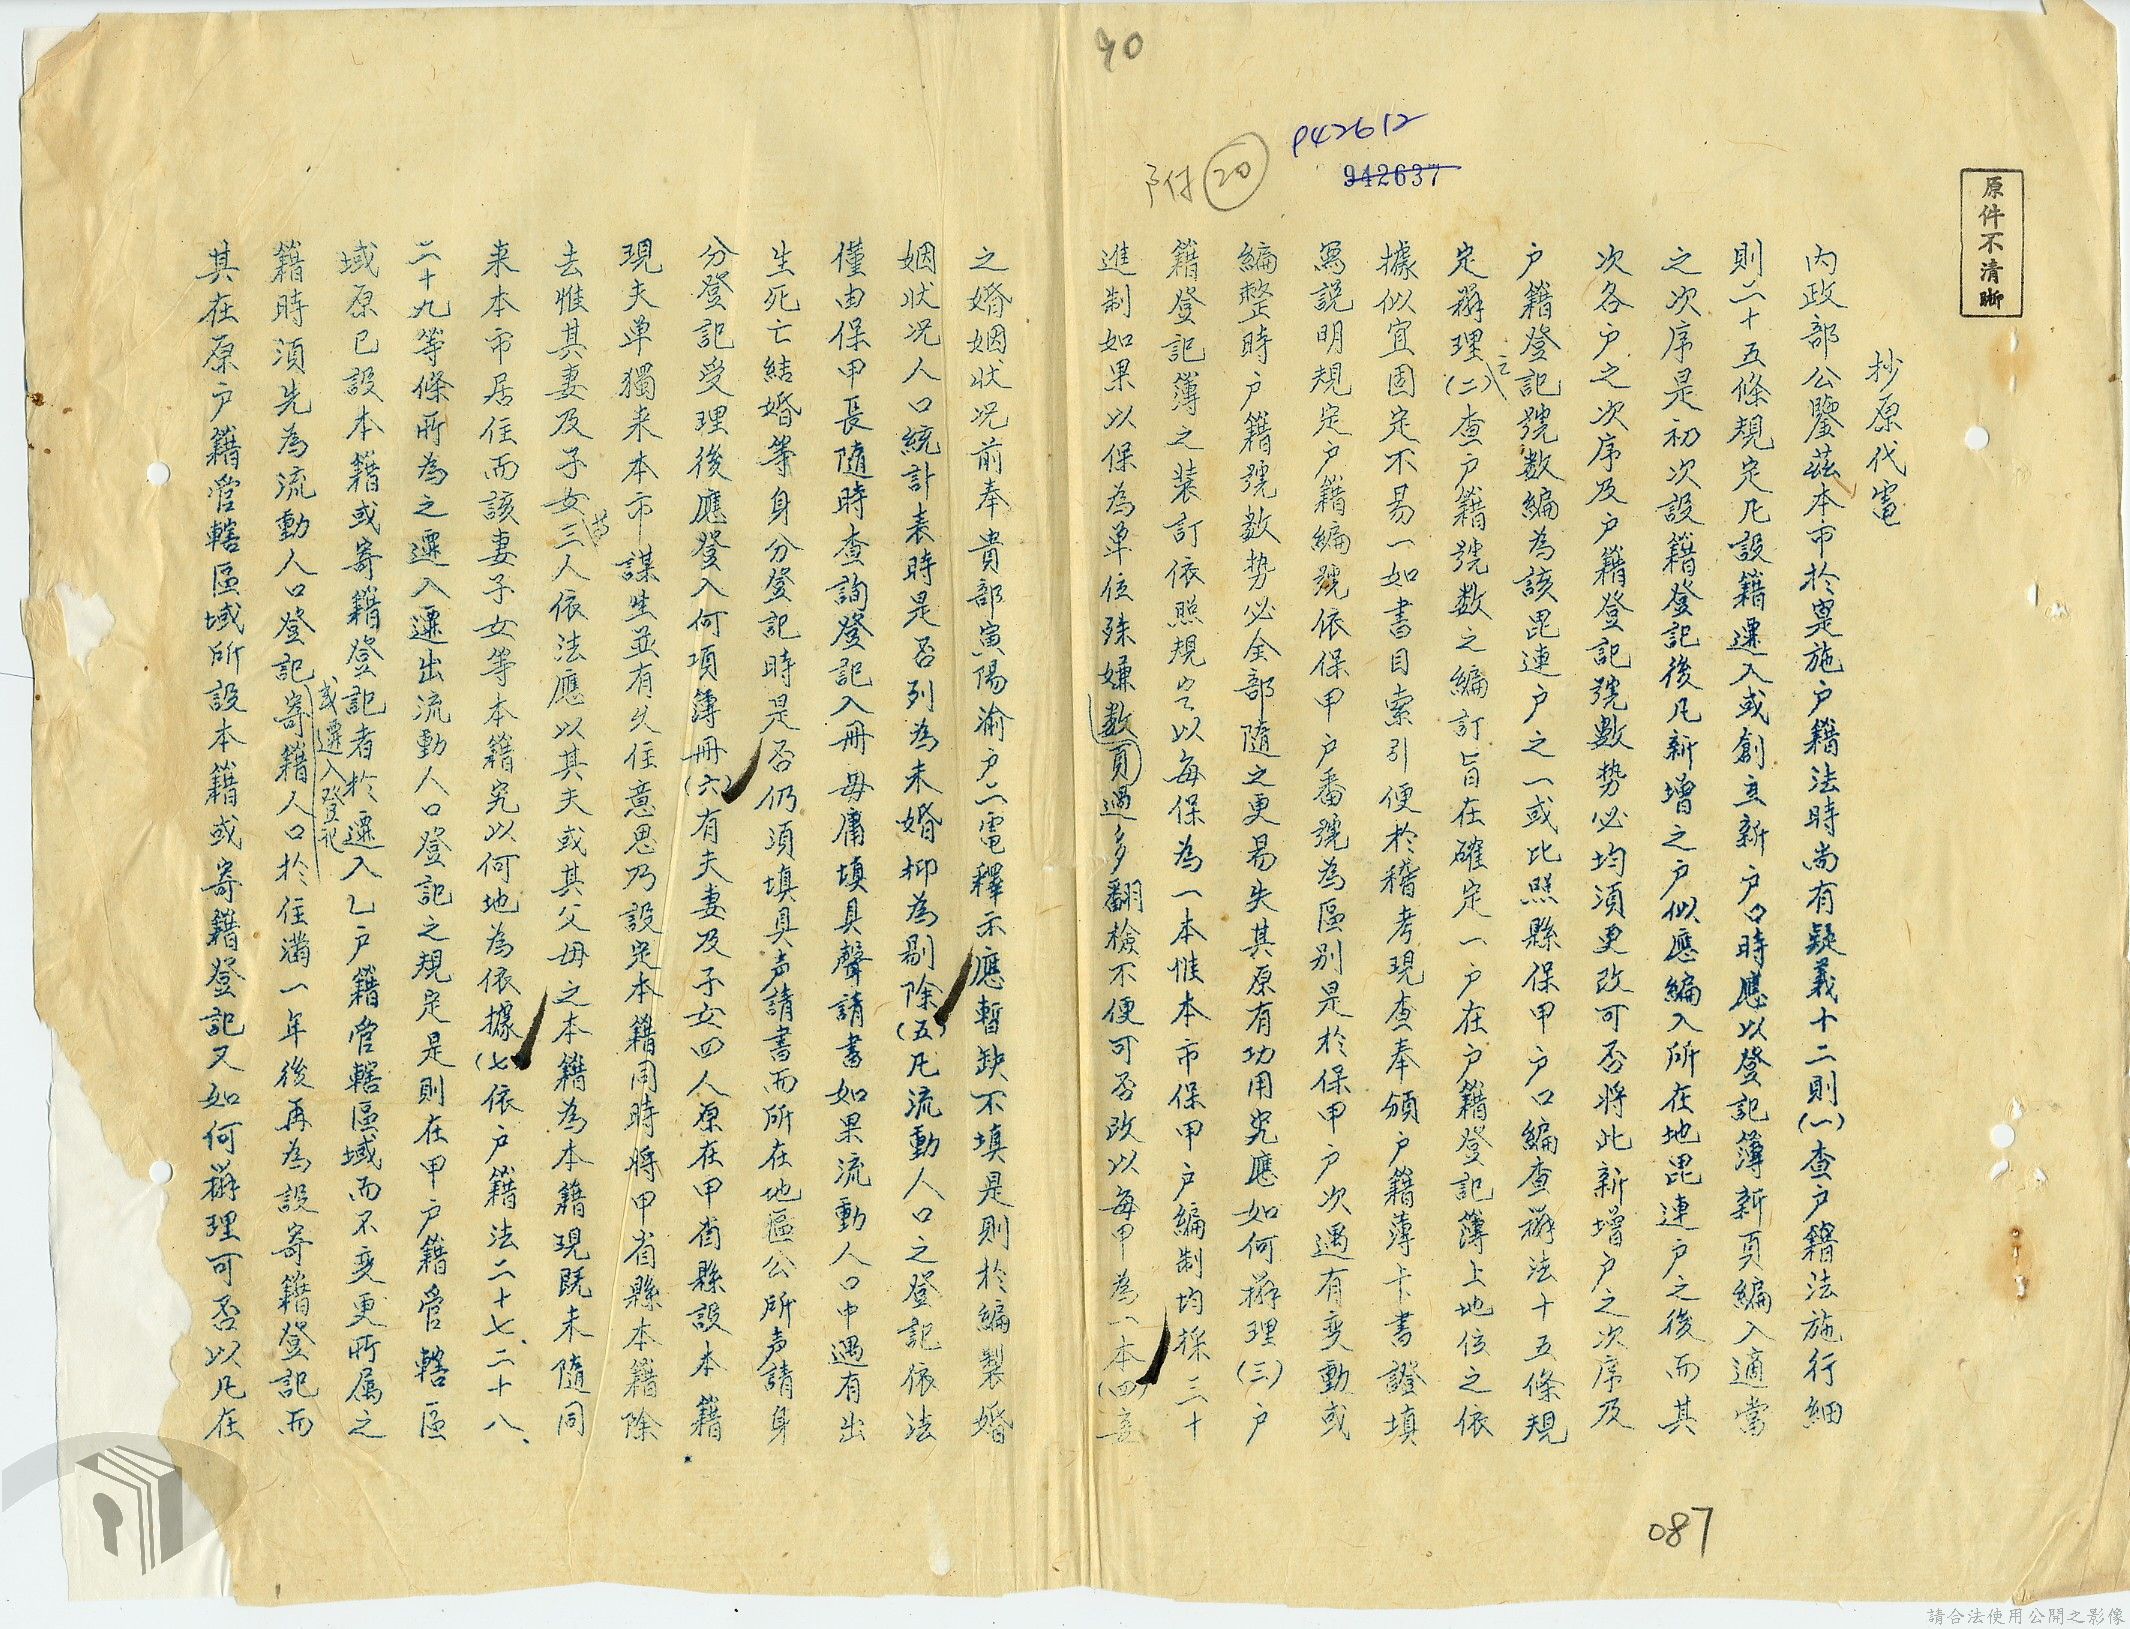 90
942612
942637
附 20
原件不清晰
抄原代電
內政部公鑒茲本市於寔施戶籍法時尚有疑義十二則(一)查戶籍法施行細
則二十五條規定凡設籍遷入或創立新戶口時應以登記簿新頁編入適當
之次序是初次設籍登記後凡新增之戶似應編入所在地毘連戶之後而其
次各戶之次序及戶籍登記號數势必均須更改可否將此新增戶之次序及
戶籍登記號数編為該毘連戶之一或比照縣保甲戶口編查辦法十五條規
定辦理(二)查戶籍號数之編訂旨在確定一戶在戶籍登記簿上地位之依
據似宜固定不易一如書目索引便於稽考現查奉頒戶籍薄卡書證填
寫說明規定戶籍編號依保甲戶番號為區别是於保甲戶次遇有变動或
編整時戶籍號数势必全部隨之更易失其原有功用究應如何辦理(三)戶
籍登記簿之裝訂依照規定以每保為一本惟本市保甲戶編制均採三十
進制如果以保為单位殊嫌数頁過多翻檢不便可否改以每甲為一本(四)
之婚姻狀况前奉貴部寅陽渝户二電釋示應暫缺不填是則於編製婚
姻狀况人口統計表時是否列為未婚抑為剔除(五)凡流動人口之登記依法
僅由保甲長隨時查詢登記入冊毋庸填具聲請書如果流動人口中遇有出
生死亡結婚等身分登記時是否仍須填具声請書而所在地區公所声請身
分登記受理後應登入何項簿冊(六)有夫妻及子女四人原在甲省縣設本籍
現夫单獨来本市謀生並有久住意思乃設定本籍同時將甲省縣本籍除
去惟其妻及子女三人依法應以其夫或其父母之本籍為本籍現既未隨同
来本市居住而該妻子女等本籍究以何地為依據(七)依戶籍法二十七、二十八、
二十九等條所為之遷入遷出流動人口登記之規定是則在甲戶籍管轄區
域原已設本籍或寄籍登記者於遷入乙戶籍管轄區域而不变更所属之
或遷入登記
籍時須先為流動人口登記寄籍人口於住滿一年後再為設寄籍登記而
其在原戶籍管轄區域所設本籍或寄籍登記又如何辦理可否以凡在
087
請合法使用公開之影像